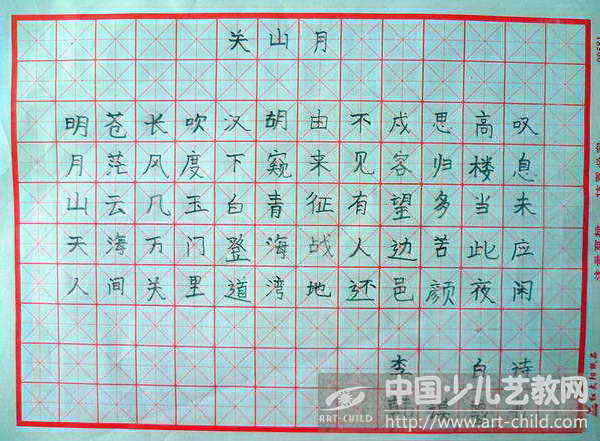 关山月
明月山天人
苍茫云海间
长风几万关
吹度玉门里
汉下白登道
胡窥青海湾
由来征战地
不见有人还
戍容望边邑
思归多苦颜
高楼当此夜
叹息未应闲
李白诗
中国少儿艺教网
ART-CHILD www.art-child.com